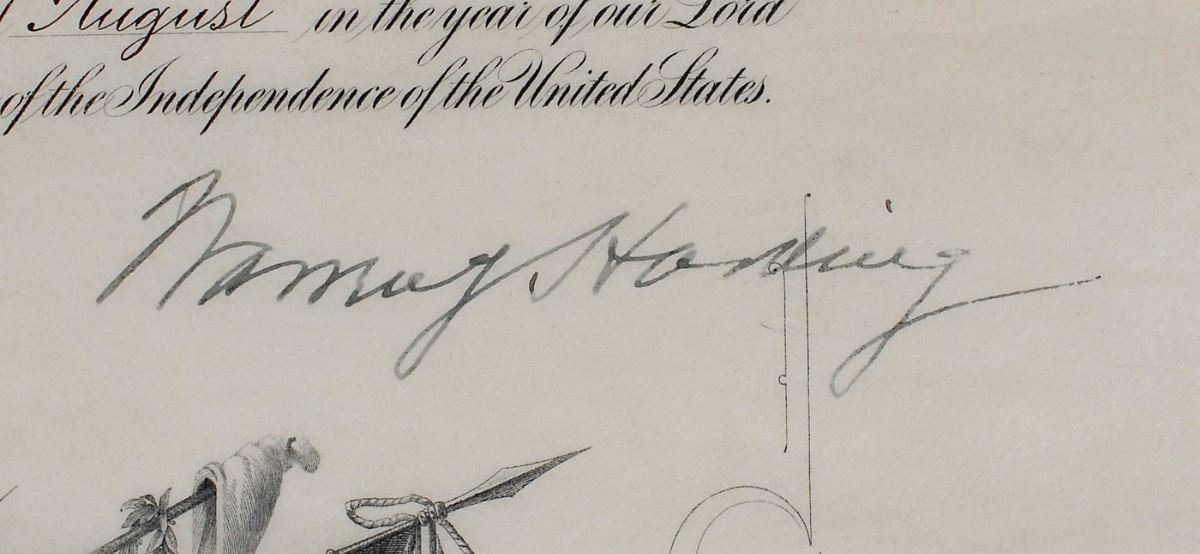 August in the year of our Lord
of the Independence of the United States.
Warren G Harding